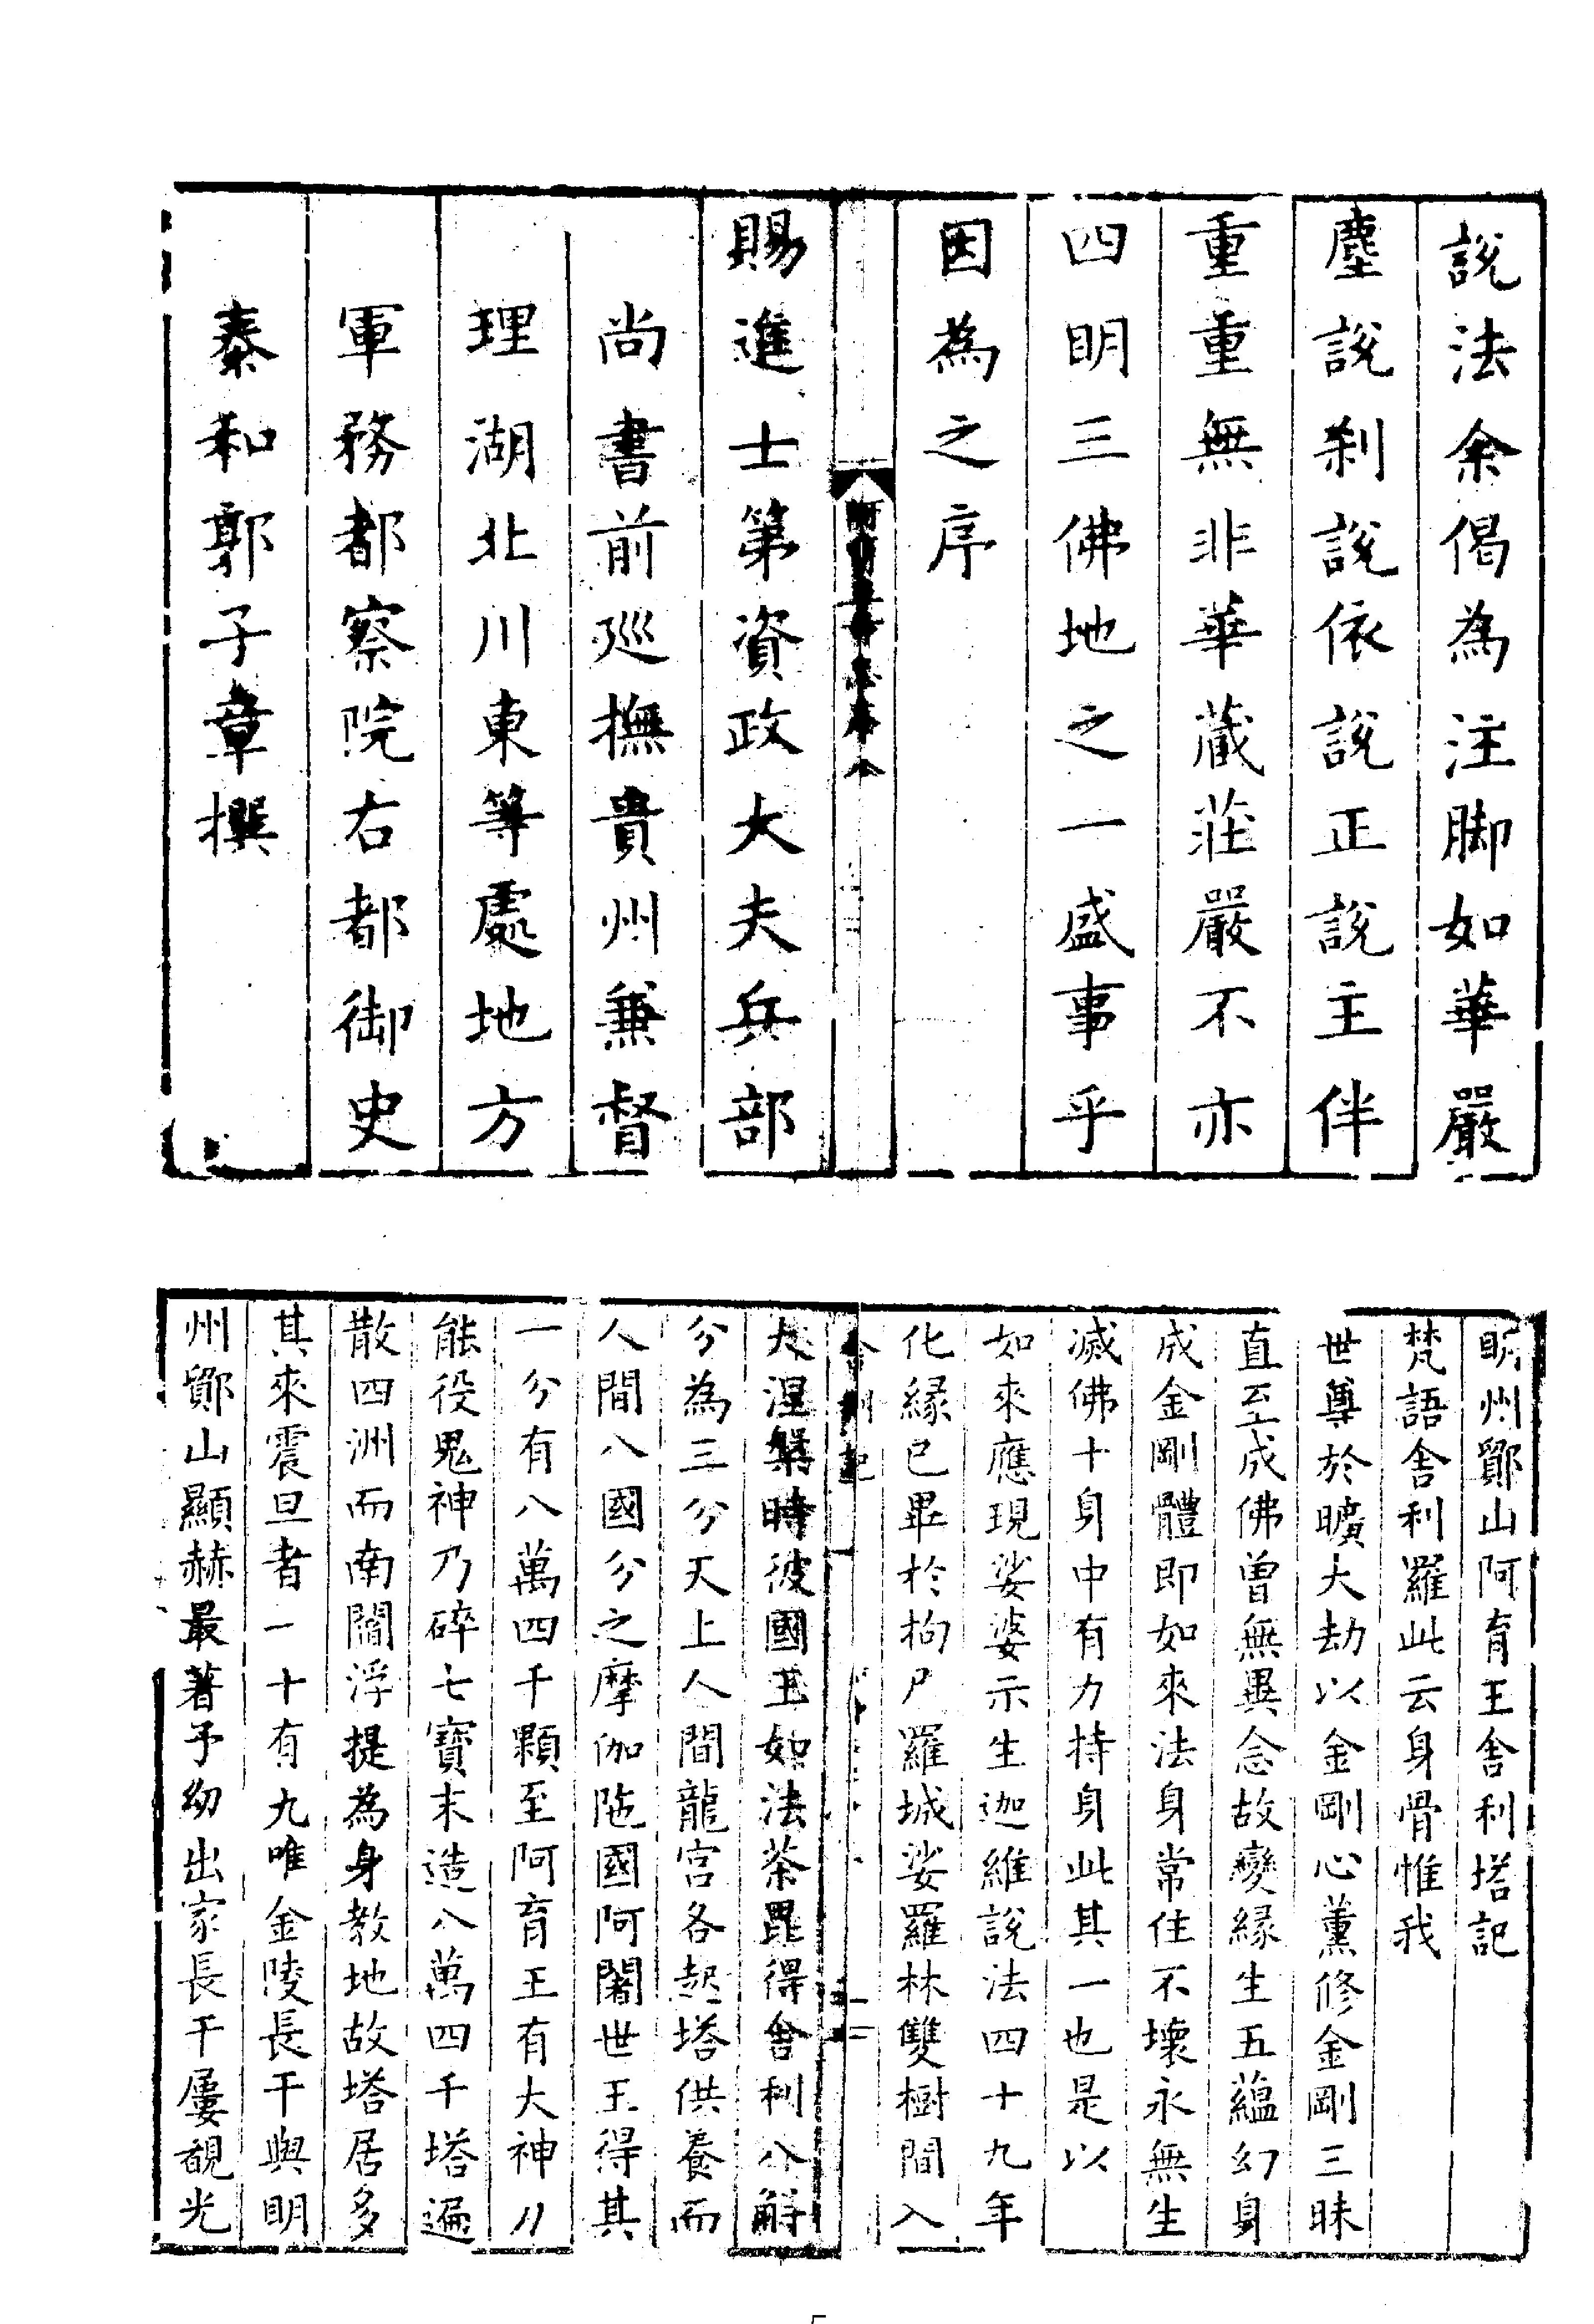 說法余偈為注脚如華嚴
塵說刹說依說正說主伴
重重無非華藏莊嚴不亦
四明三佛地之一盛事乎
因為之序
賜進士第資政大夫兵部
尚書前廵撫貴州兼督
理湖北川東等處地方
軍務都察院右都御史
泰和郭子章撰
明州鄮山阿育王舍利塔記
梵語舍利羅此云身骨惟我
世尊於曠大劫以金剛心薰修金剛三昧
直至成佛曾無異念故變緣生五蘊幻身
成金剛體即如來法身常住不壞永無生
滅佛十身中有力持身此其一也是以
如來應現娑婆示生迦維說法四十九年
化緣已畢於拘尸羅城娑羅林雙樹間入
舍利記
大涅槃時彼國王如法茶毘得舍利八斛
分為三分天上人間龍宮各起塔供養而
人間八國分之摩伽陁國阿闍世王得其
一分有八萬四千顆至阿育王有大神力
能役鬼神乃碎七寶末造八萬四千塔遍
散四洲而南閻浮提為身教地故塔居多
其來震旦者一十有九唯金陵長干與明
州鄮山顯赫最著予幼出家長干屢覩光
5